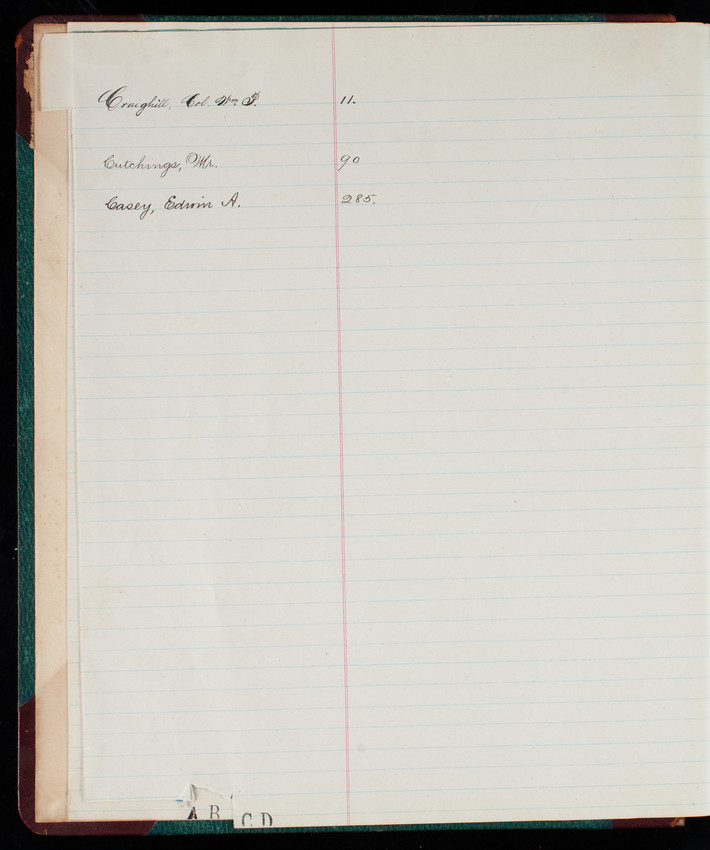 Craighill, Col. Wm P. 11.
Cutchings, Mr. 90
Casey, Edwin A. 285.
A B C D